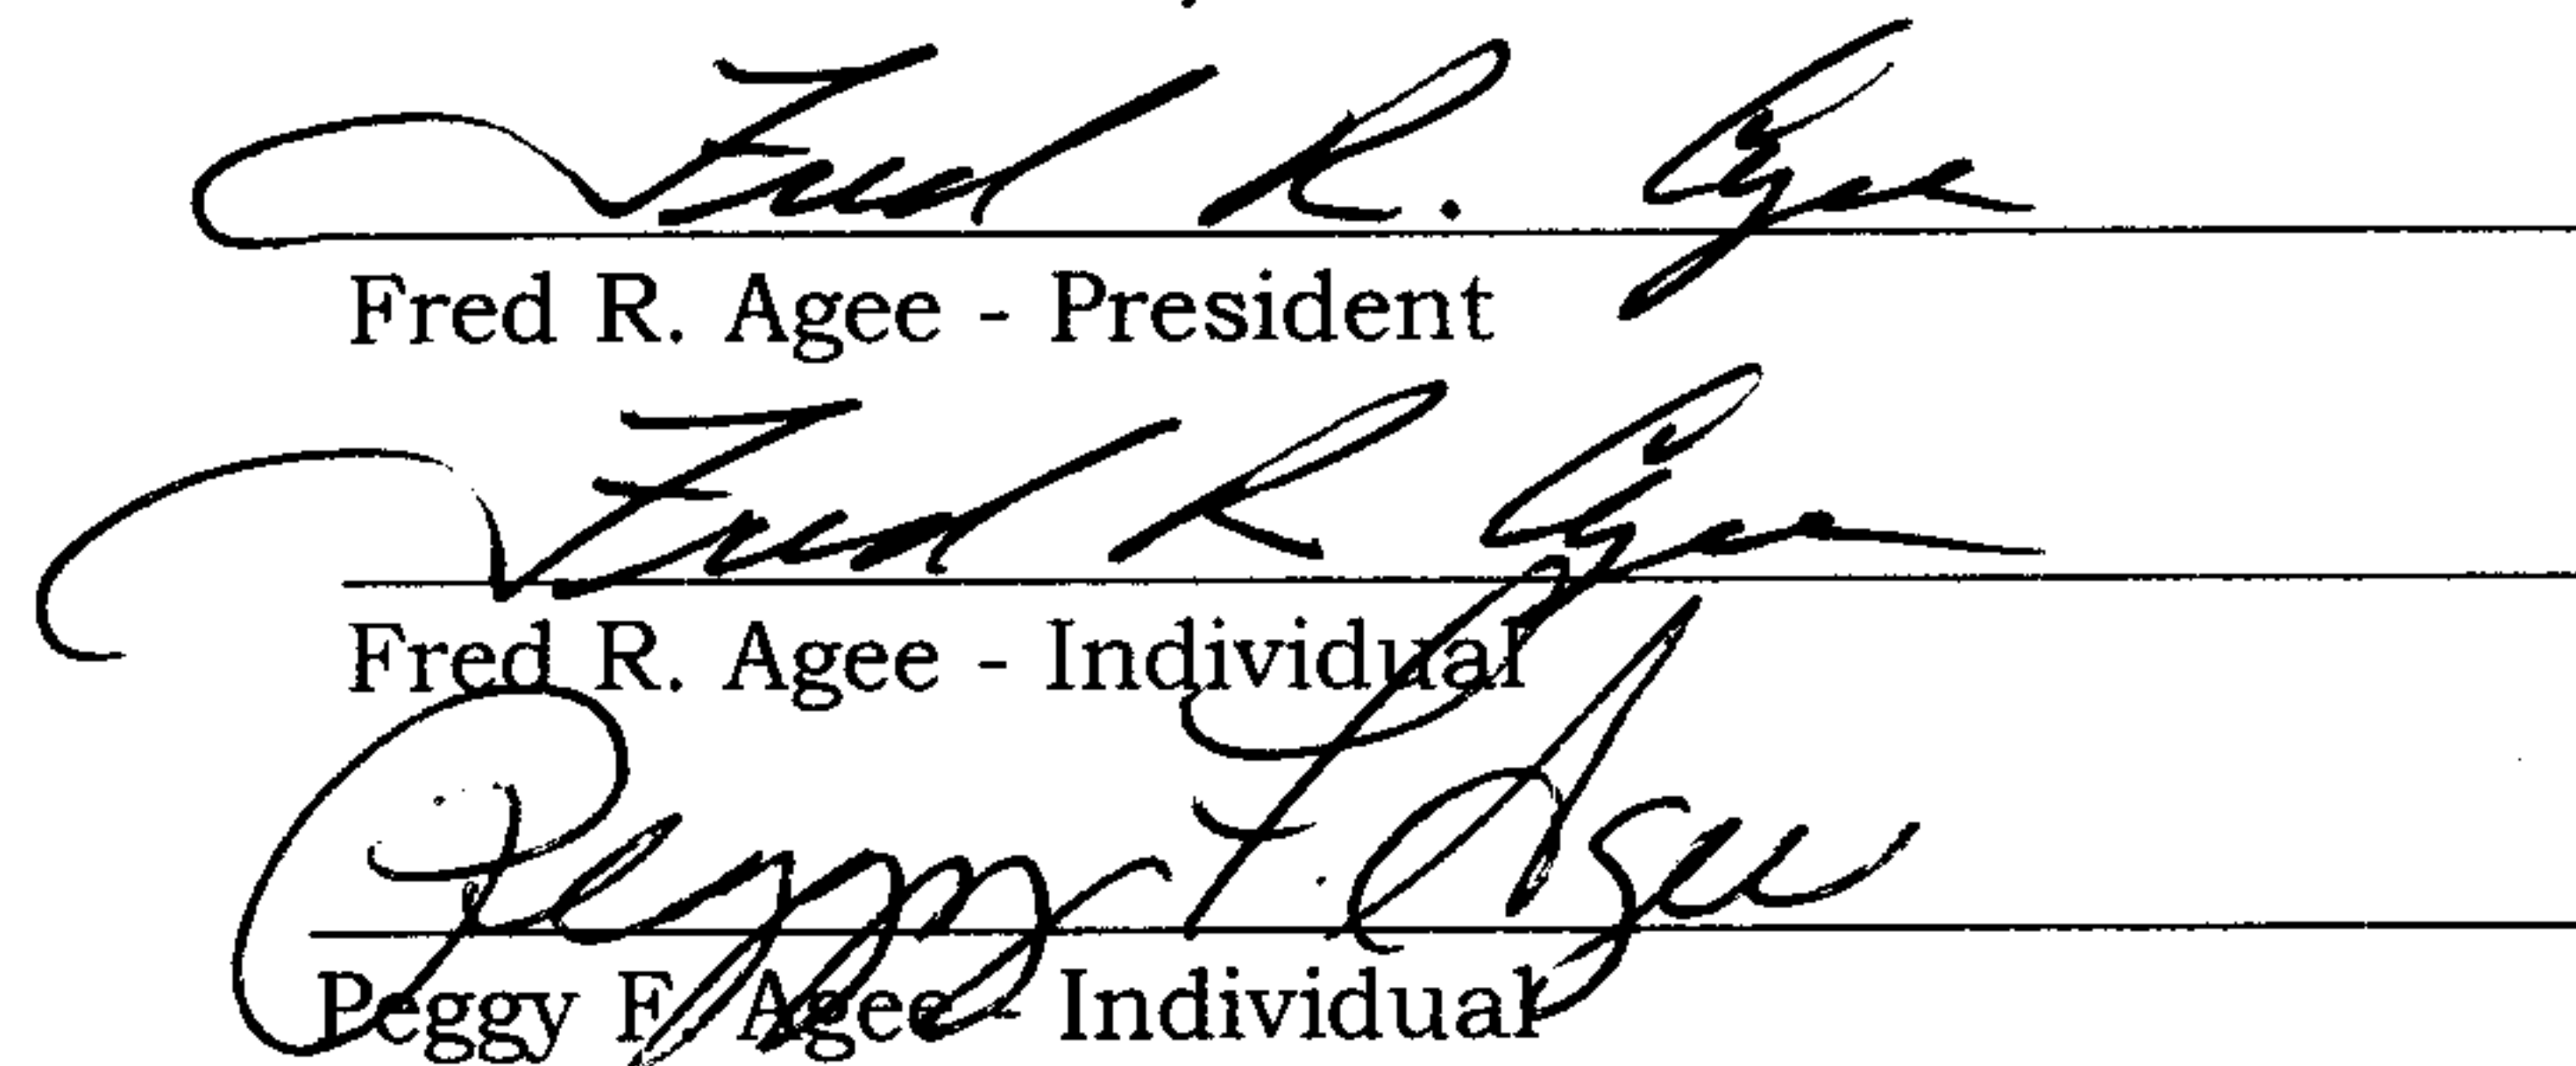 Fred R. Agee
Fred R. Agee - President
Fred R Agee
Fred R. Agee - Individual
Peggy F. Agee
Peggy F. Agee - Individual